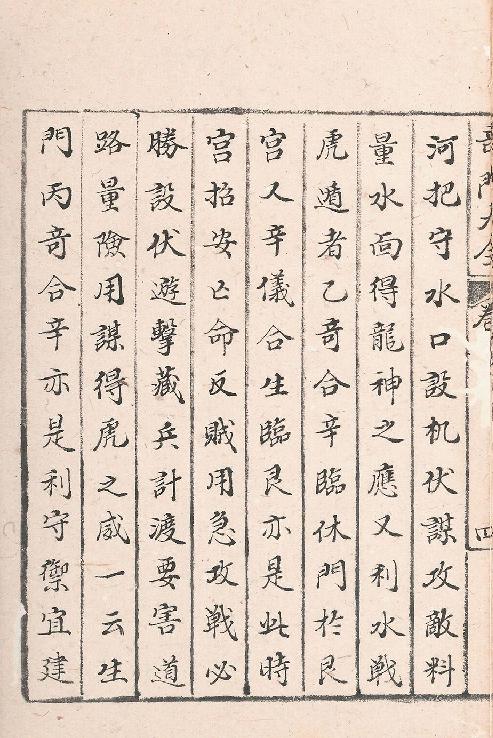 河把守水口設机伏謀攻敵料
量水面得龍神之應又利水戰
虎遁者乙竒合辛臨休門於艮
宫又辛儀合生臨艮亦是此時
宫招安亡命反賊用急攻戰必
勝設伏遊擊藏兵計渡要害道
路量險用謀得虎之威一云生
門丙竒合辛亦是利守禦宜建